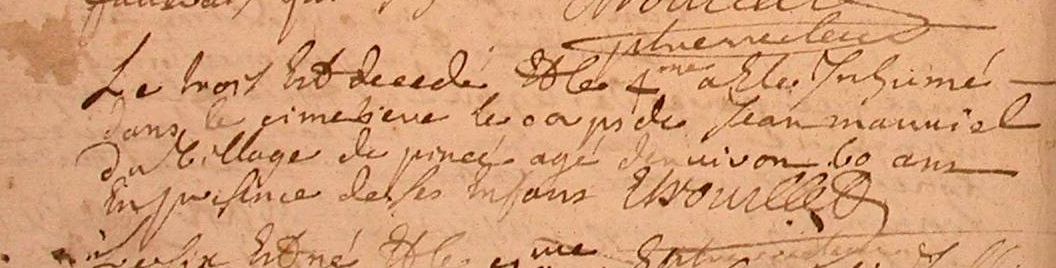 Le trois Est decedé Et le 4me a Este Inhumé
dans le cimetiere le corps de Jean mauuiel
du Village de pincé agé denuiron 60 ans
En presence de ses Enfans
Est né Et le me